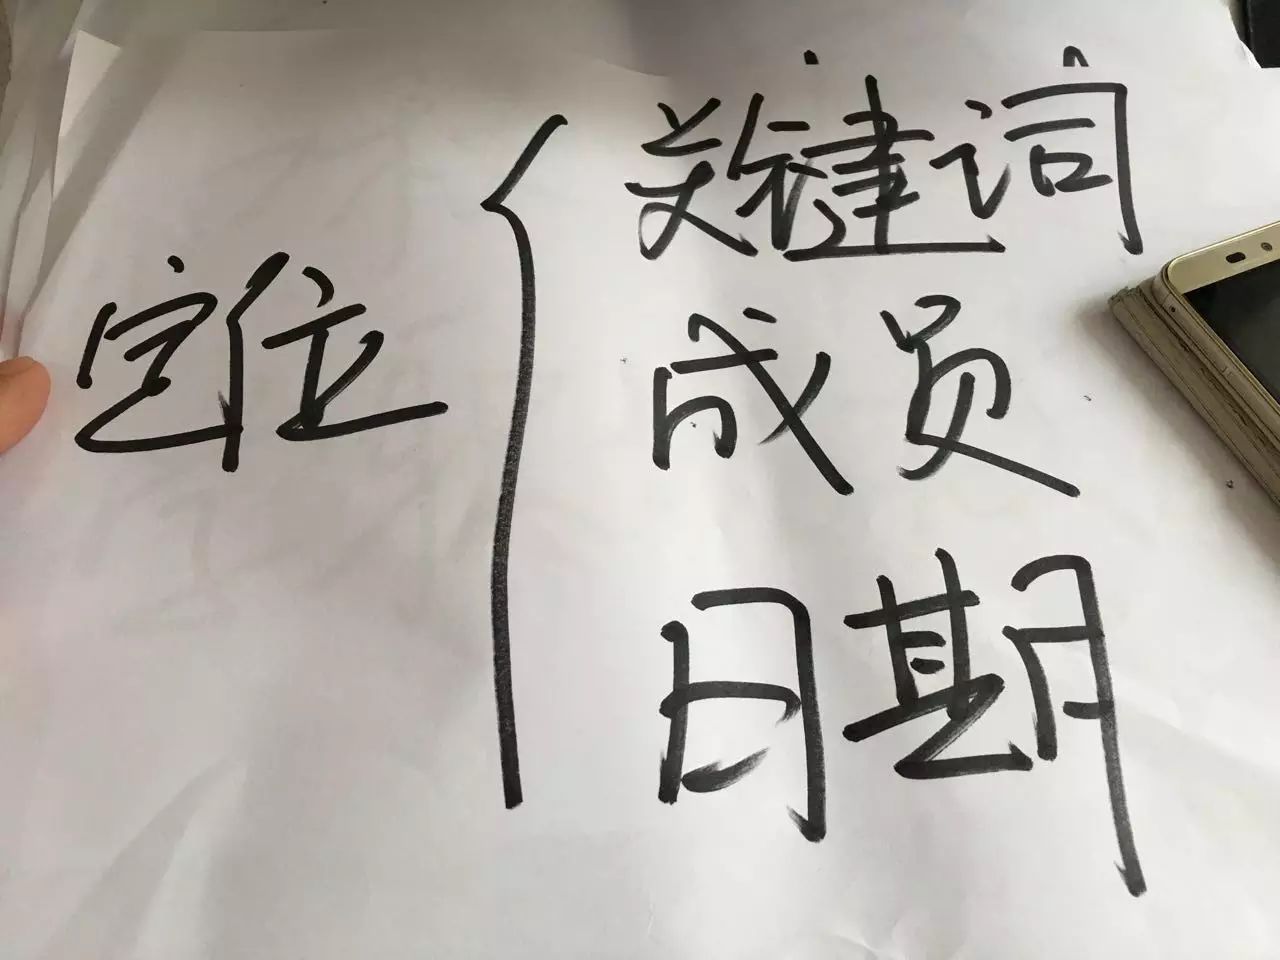 定位
关键词
成员
日期